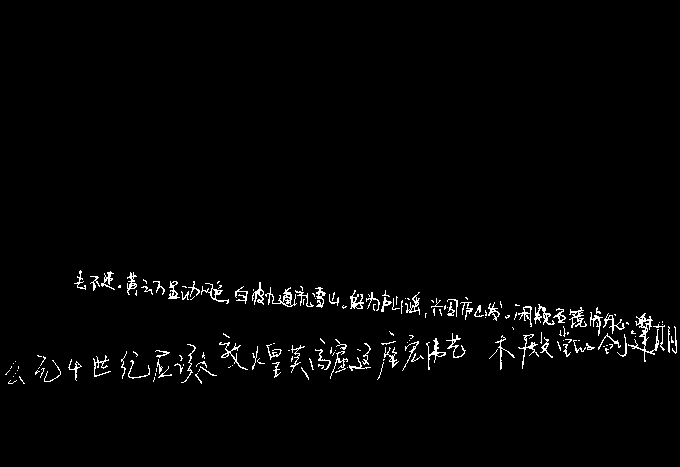 去不还。黄云万里动风色,白波九道流雪山。好为庐山谣,兴因庐山发。闲窥石镜清我心,谢
公元4世纪应该是敦煌莫高窟这座宏伟艺术殿堂的创建期